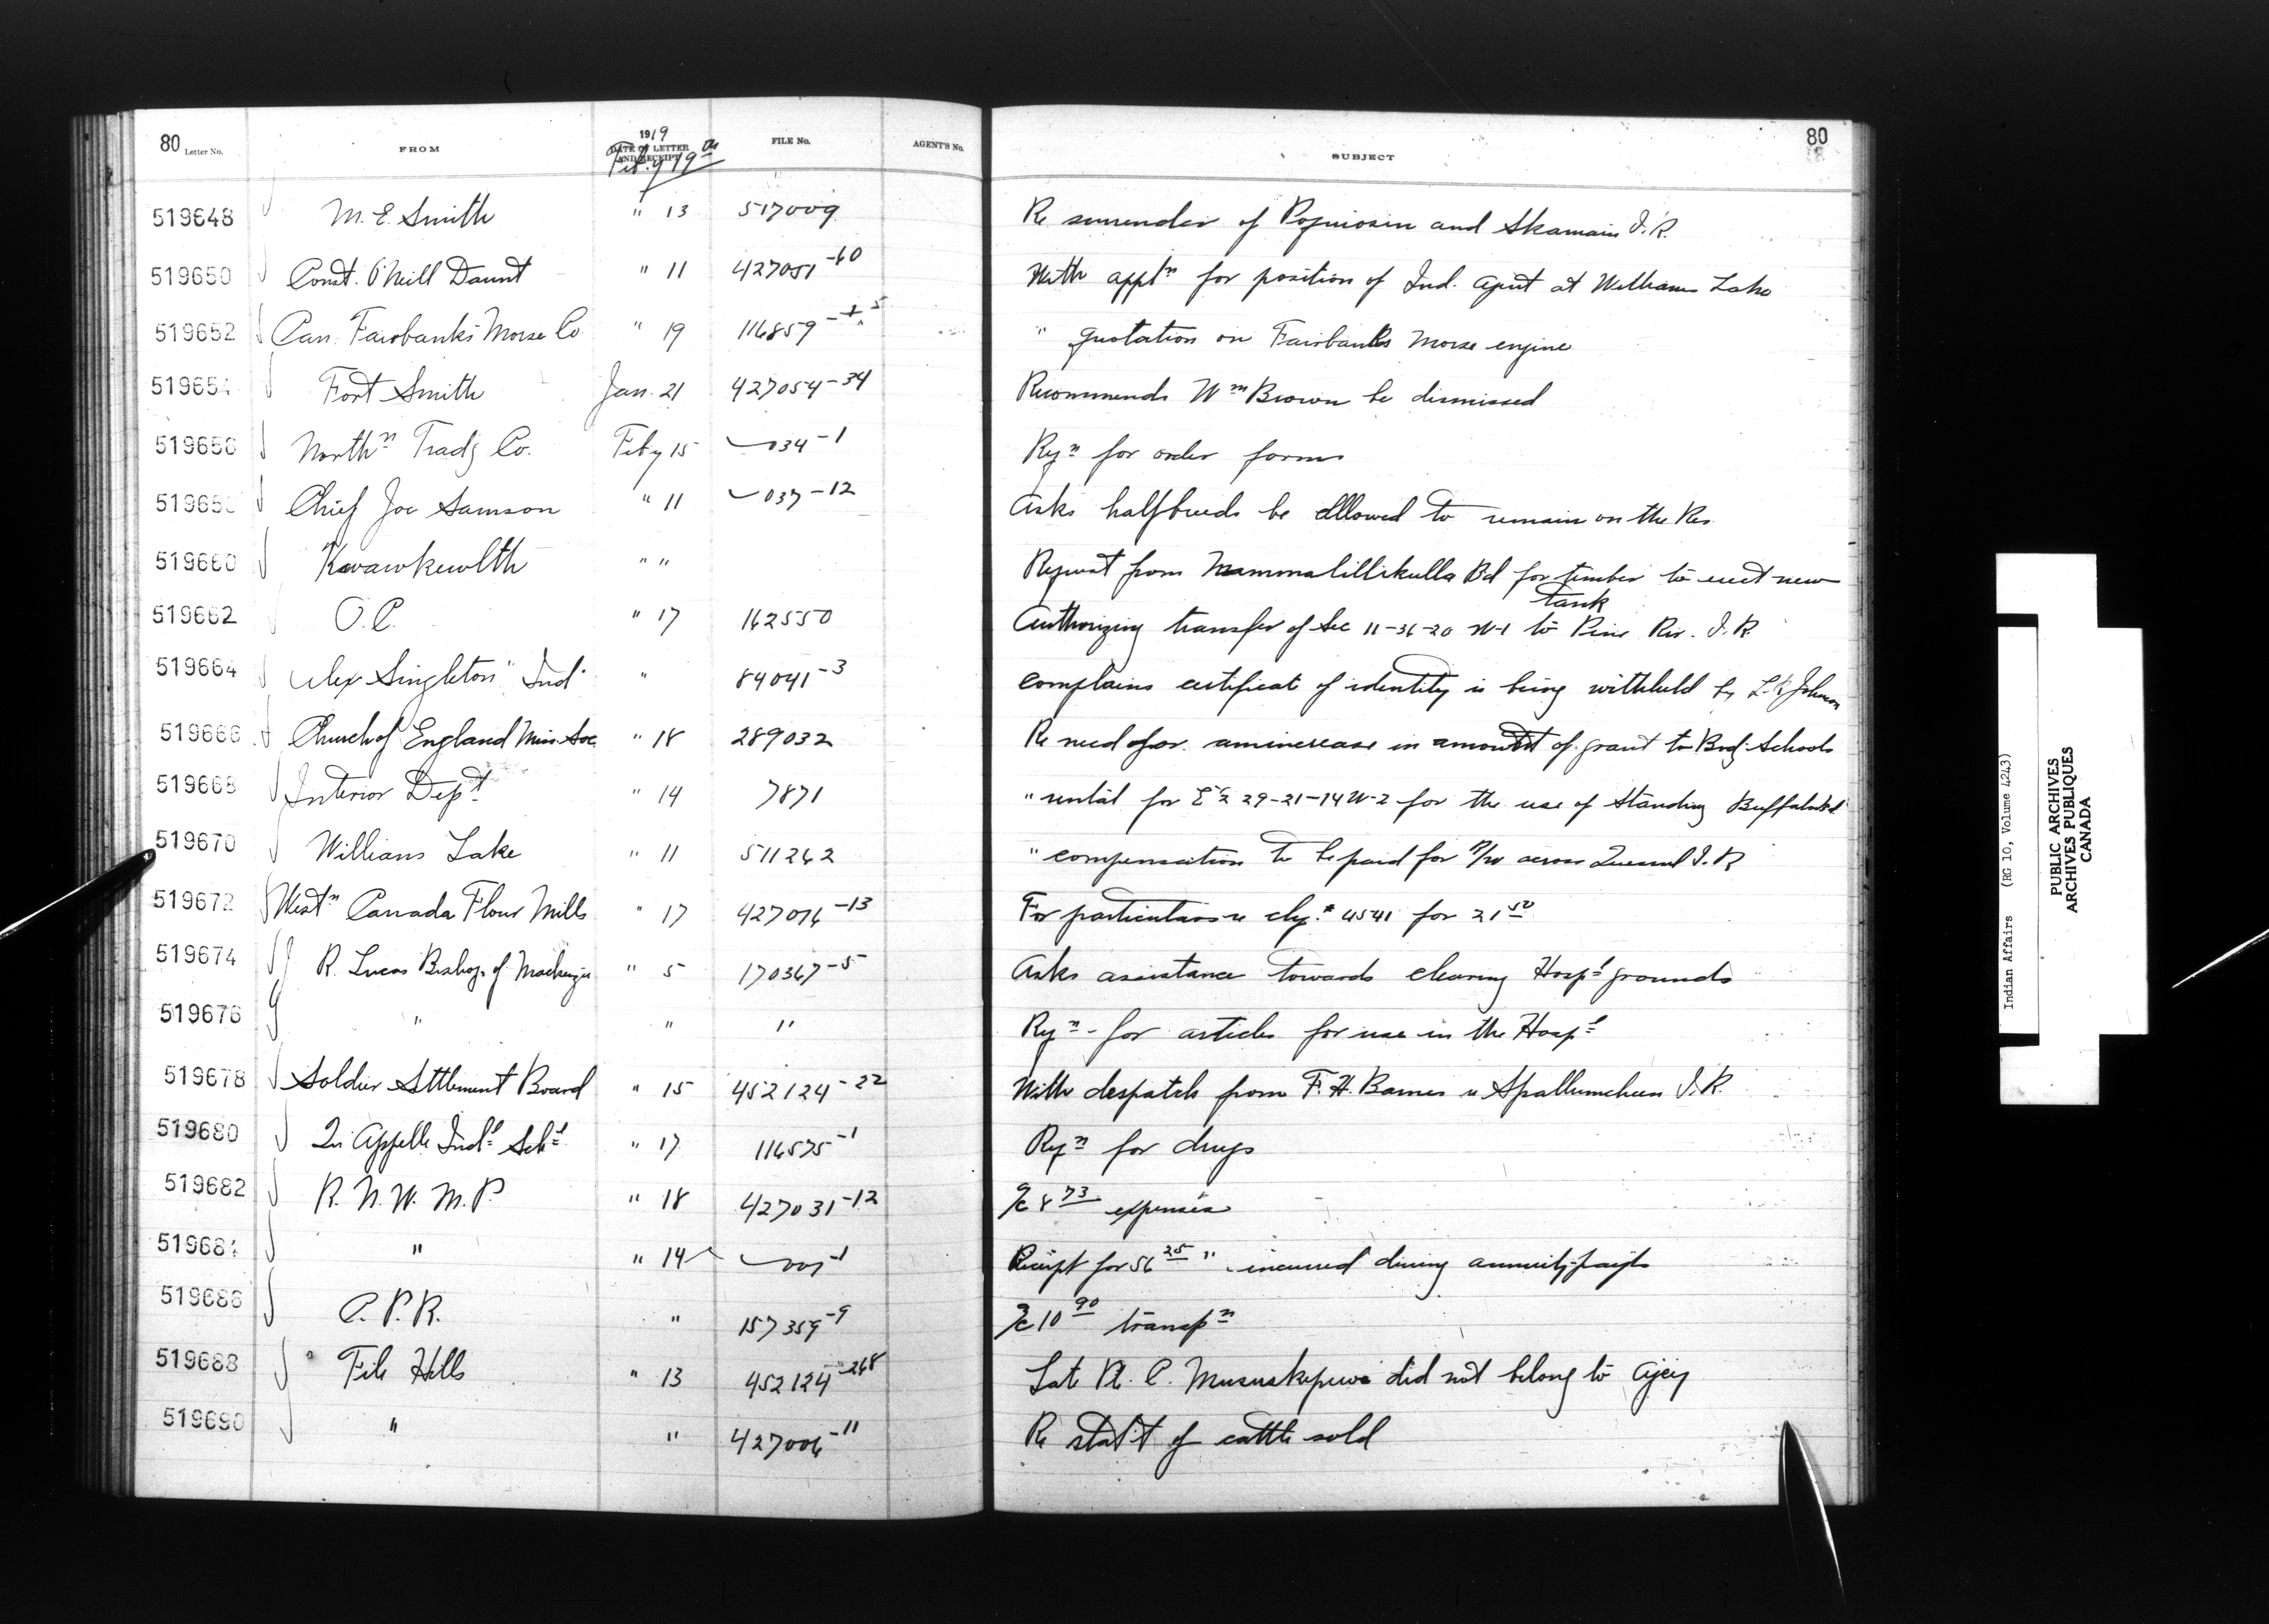 80 Letter No. FROM 1919 DATE OF LETTER AND RECEIPT Feby 19th FILE No. AGENT'S No. SUBJECT 80
519648 M. E. Smith " 13 517009 Re surrender of and Skamain I.R.
519650 Const. O'Neill Daunt " 11 427051-60 With applⁿ for position of Ind. Agent at Williams Lake
519652 Can. Fairbanks Morse Co " 19 116859 " quotation on Fairbanks Morse engine
519654 Fort Smith Jan. 21 427054-34 Recommends Wᵐ Brown be dismissed
519656 Northⁿ Trad'g Co. Feby 15 034-1 Rqⁿ for order forms
51965 Chief Joe Samson " 11 037-12 Asks halfbreeds be allowed to remain on the Res.
519660 Kwawkewlth " " Request from Mammalillikulla Bd for timber to erect new
tank
519662 O.C. " 17 162550 Authorizing transfer of Sec 11-36-20 W-1 to Pine Riv. I.R.
519664 Alex Singleton "Ind" " 84041-3 Complains certificate of identity is being withheld by Johnson
519666 Church of England Miss. Soc " 18 289032 Re need for an increase in amount of grant to Bdg. Schools
519668 Interior Dept " 14 7871 " rental for E½ 29-21-14 W-2 for the use of Standing Buffalo Bd
519670 Williams Lake " 11 511262 " compensation to be paid for R/W across Quesnel I.R.
519672 Westⁿ Canada Flour Mills " 17 427016-13 For particulars re chq. # 4541 for 21⁵⁰
519674 R. Lucas Bishop of Mackenzie " 5 170367-5 Asks assistance towards clearing Hospˡ grounds
519676 " " " Rqⁿ for articles for use in the Hospˡ
519678 Soldier Sttlement Board " 15 452124-22 With despatch from F. H. Barnes re Spallumcheen I.R.
519680 Qu'Appelle Indˡ Schˡ " 17 116575-1 Rqⁿ for drugs
519682 R. N. W. M. P. " 18 427031-12 a/c 8⁷³ expenses
51968 " " 14 001-1 Receipt for 56²⁵ " incurred during annuity payts
519686 C. P. R. " 157359-9 a/c 10⁹⁰ transpⁿ
519688 File Hills " 13 452124-268 Late Pte. C. Mususkepuwe did not belong to Agcy
519690 " " 427006-11 Re stat't of cattle sold
Indian Affairs (RG 10, Volume 4243)
PUBLIC ARCHIVES
ARCHIVES PUBLIQUES
CANADA